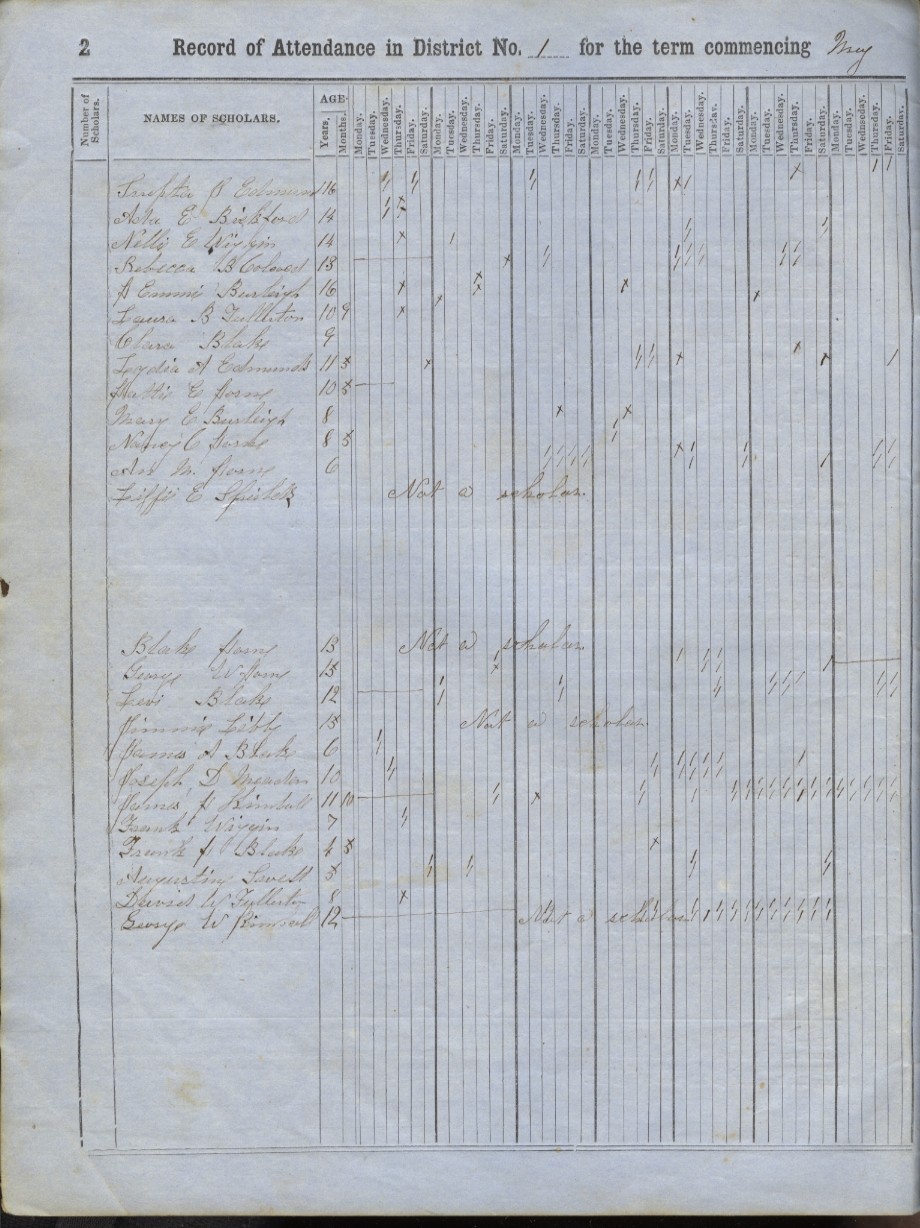 2 Record of Attendance in District No. 1 for the term commencing May
Number of Scholars. NAMES OF SCHOLARS. AGE
Years. Months. Monday. Tuesday. Wednesday. Thursday. Friday. Saturday. Monday. Tuesday. Wednesday. Thursday. Friday. Saturday. Monday. Tuesday. Wednesday. Thursday. Friday. Saturday. Monday. Tuesday. Wednesday. Thursday. Friday. Saturday. Monday. Tuesday. Wednesday. Thursday. Friday. Saturday. Monday. Tuesday. Wednesday. Thursday. Friday. Saturday. Monday. Tuesday. Wednesday. Thursday. Friday. Saturday.
A 16
Ada E Bickford 14
Nellie E Wiggin 14
Rebecca B 13
A Emmie Burleigh 16
Laura B Fullerton 10 9
Clara Blake 9
Lydia A Edmunds 11 5
Hattie E Horne 10 5
Mary E Burleigh 8
Nancy C Horne 8 5
M. Horne 6
E Not a scholar
Blake Horne 13 Not a scholar
George W Horne 15
Levi Blake 12
Jimmie Libby 15 Not a scholar
James A Blake 6
Joseph D 10
James H Kimball 11 10
Frank Wiggin 7
Frank J Blake 4 5
Augustine Lovett 5
David W Fullerton 8
George W Kimball 12 Not a scholar